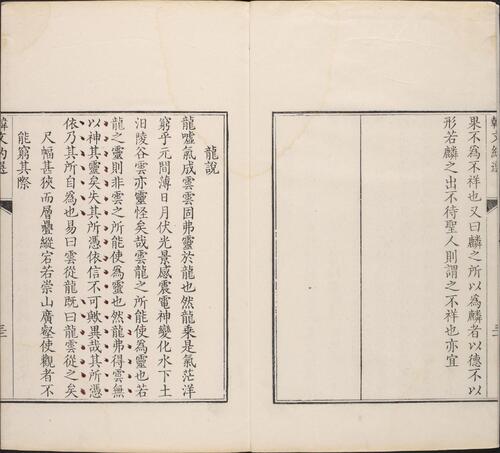 果不為不祥也又曰麟之所以為麟者以德不以
形若麟之出不待聖人則謂之不祥也亦宜
龍說
龍噓氣成雲雲固弗靈於龍也然龍乘是氣茫洋
窮乎元間薄日月伏光景感震電神變化水下土
汨陵谷雲亦靈怪矣哉雲龍之所能使為靈也若
龍之靈則非雲之所能使為靈也然龍弗得雲無
以神其靈矣失其所憑依信不可歟異哉其所憑
依乃其所自為也易曰雲從龍既曰龍雲從之矣
尺幅甚狹而層疊縱宕若崇山廣壑使觀者不
能窮其際
韓文約選